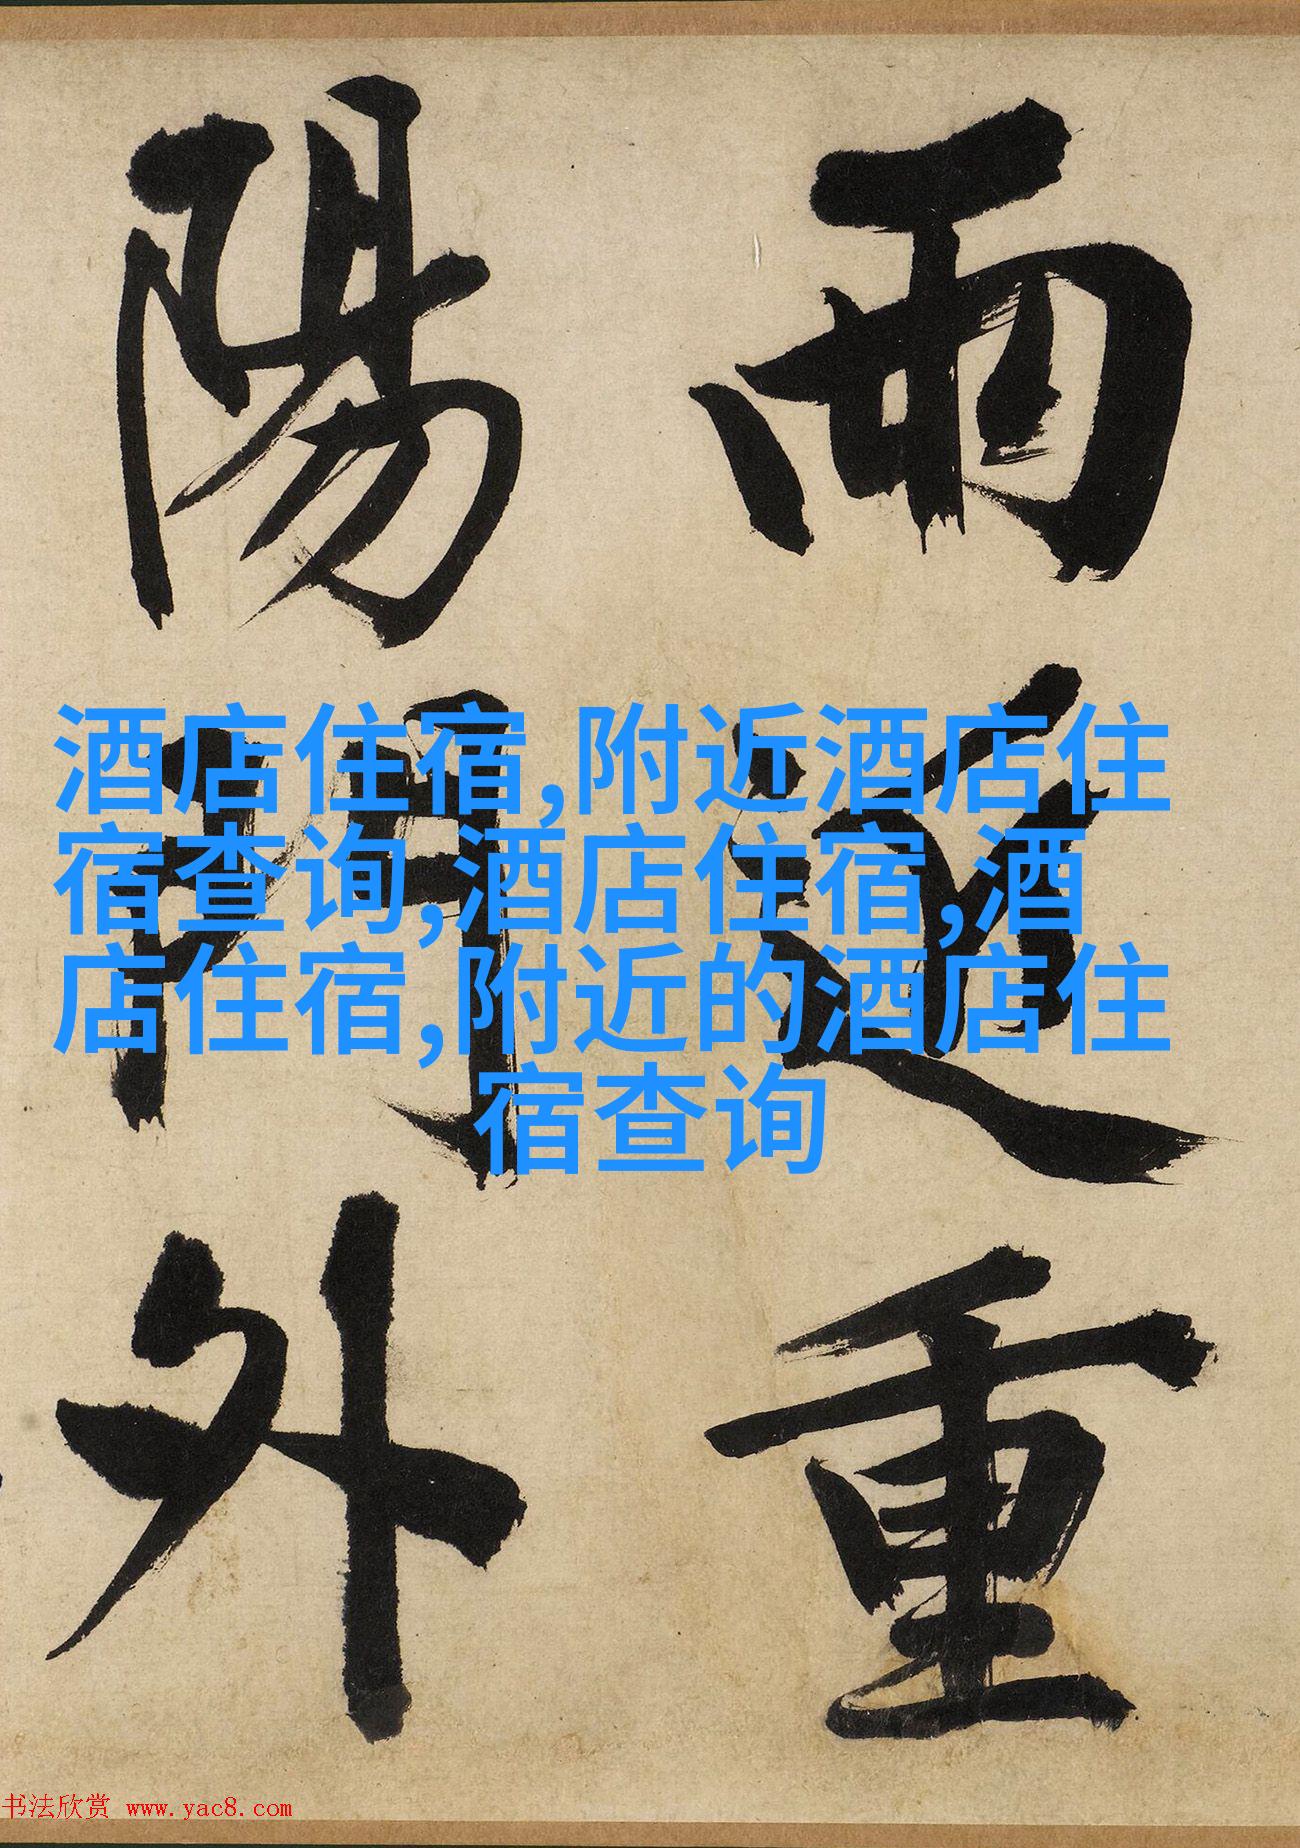 雨
重
陽
門
外
酒店住宿,附近酒店住
宿查询,酒店住宿,酒
店住宿,附近的酒店住
宿查询
书法欣赏 www.yac8.com